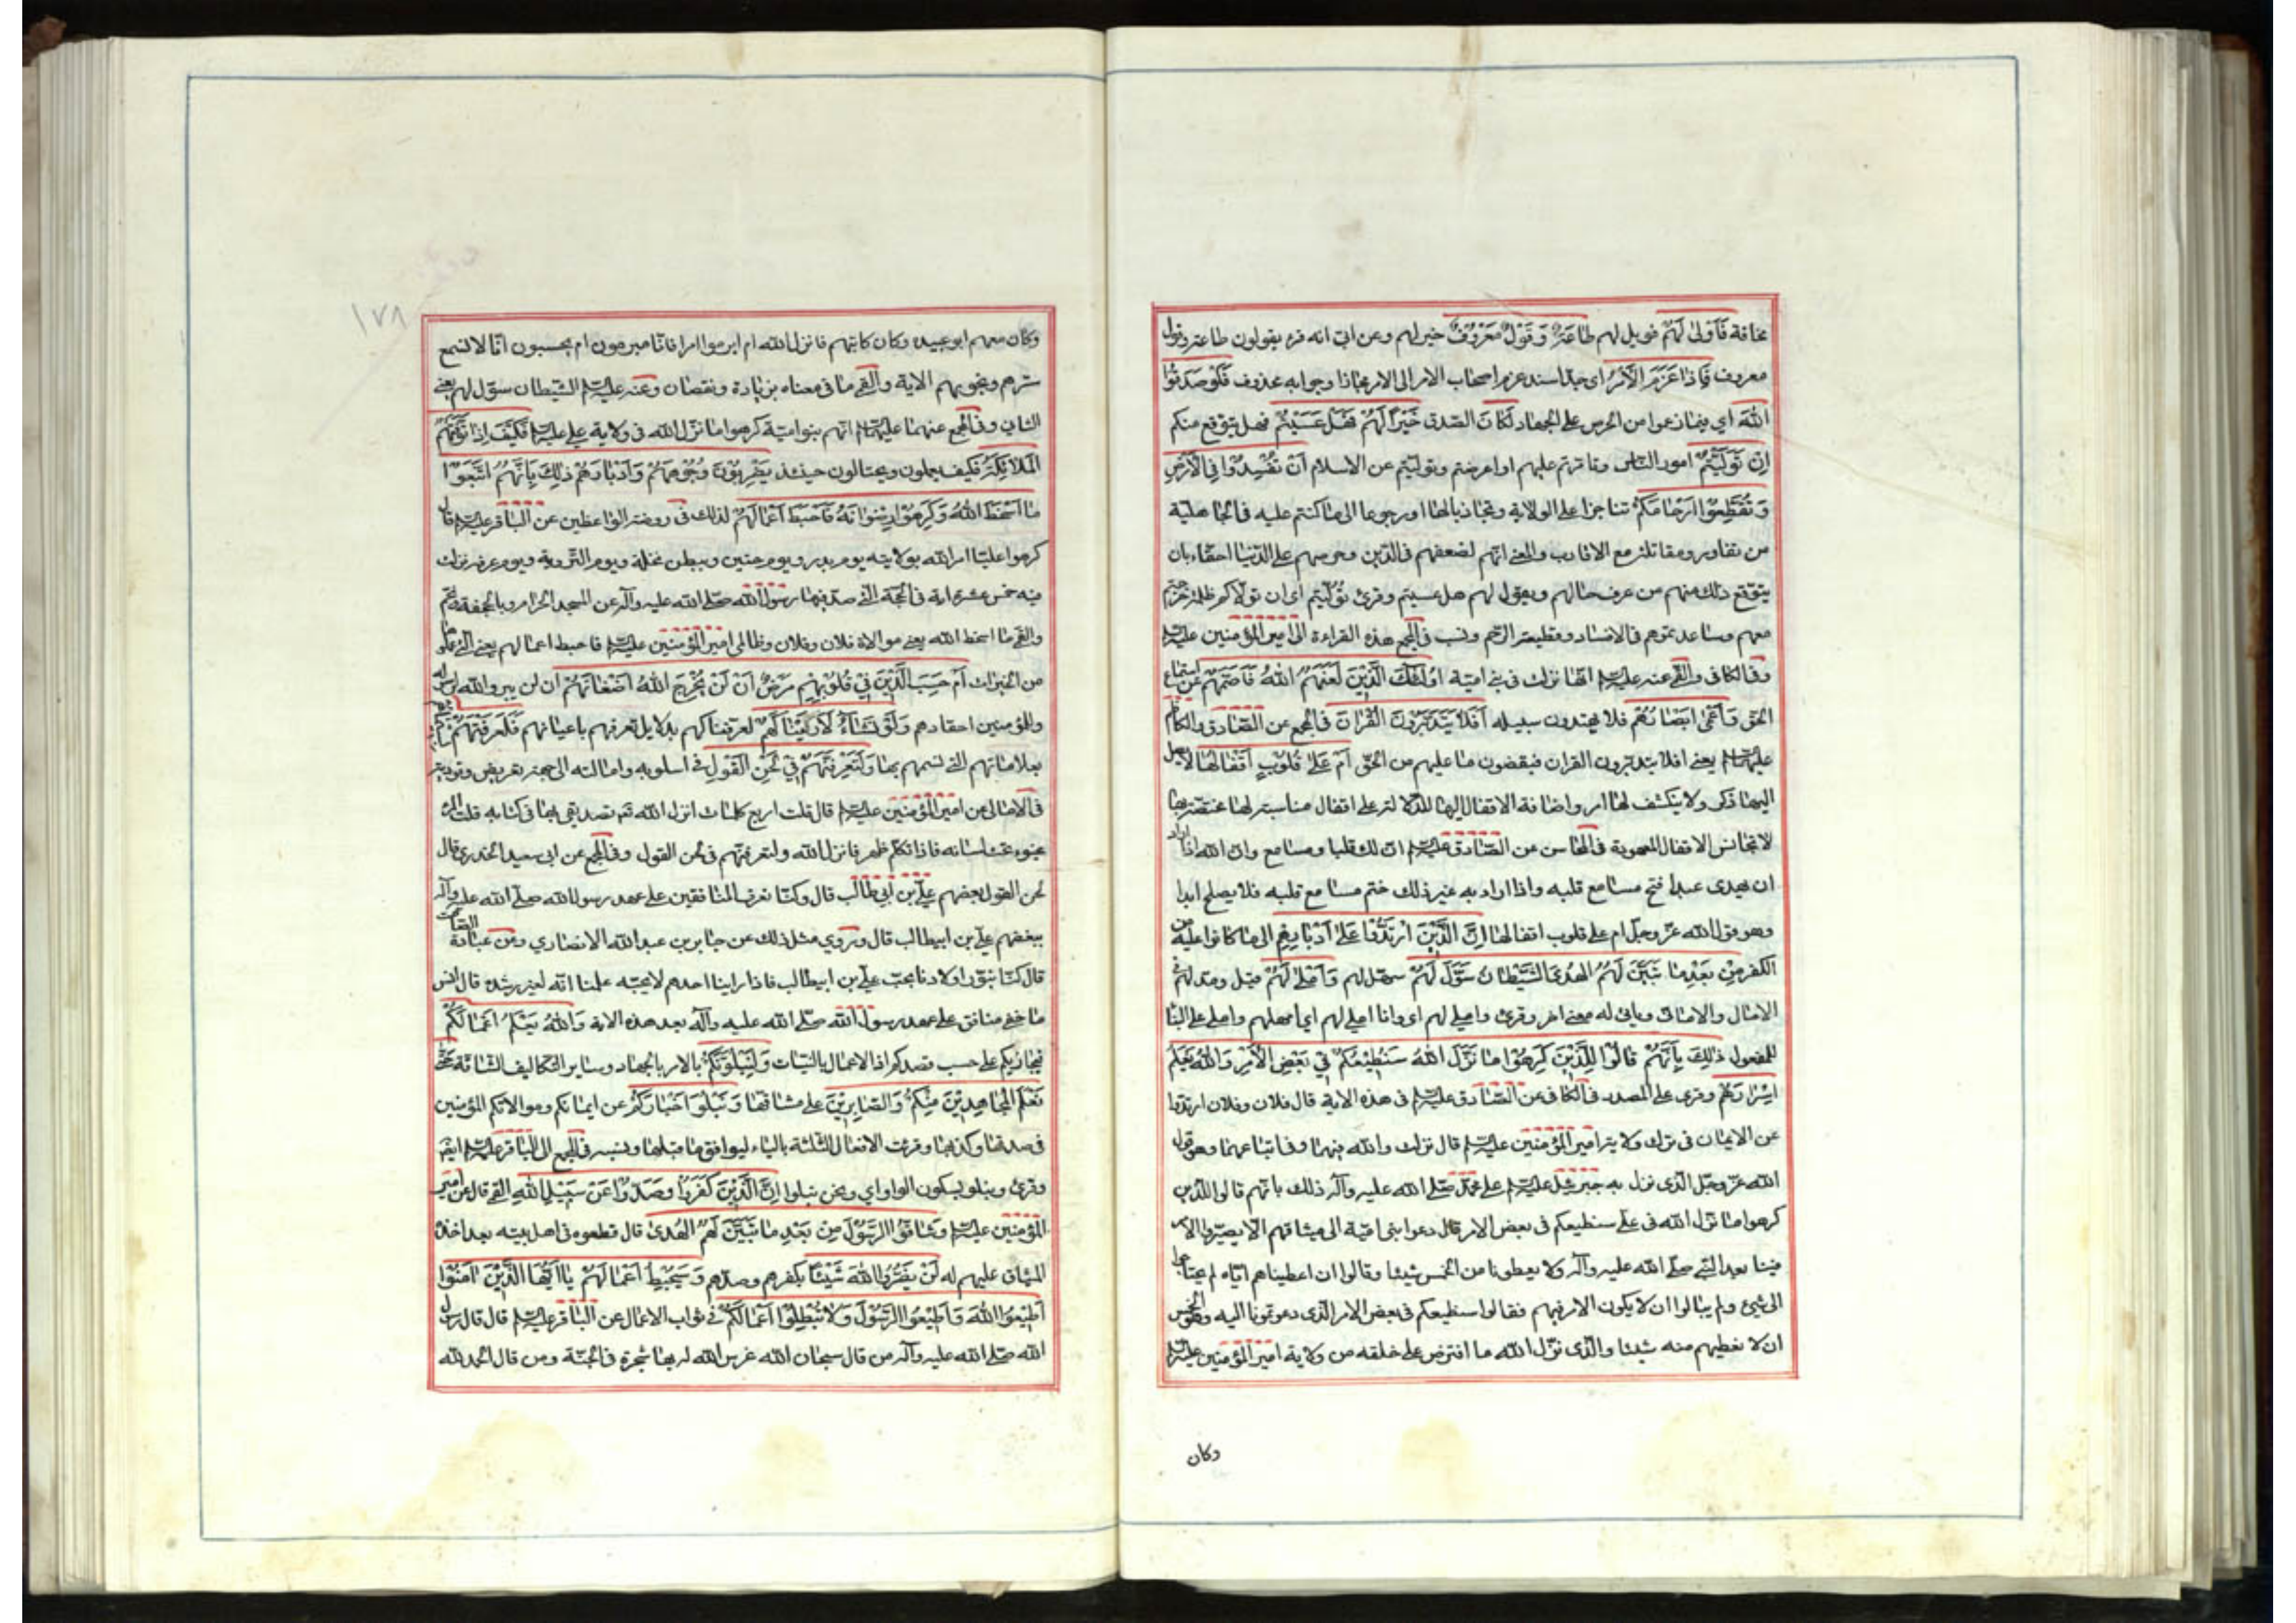 مخافة فَأَوْلىٰ لَهُمْ فويل لهم طاعَةٌ وَقَوْلٌ مَعْرُوفٌ خير لهم وعن ابيّ انه قرء يقولون طاعة وقول
معروف فَإِذا عَزَمَ الْأَمْرُ اى جدّ اسند عزم اصحاب الامر الى الامر مجازا وجوابه محذوف فَلَوْ صَدَقُوا
اللهَ اي فيما زعموا من الحرص على الجهاد لَكانَ الصّدق خَيْراً لَهُمْ فَهَلْ عَسَيْتُمْ فهل يتوقع منكم
اِنْ تَوَلَّيْتُمْ امور الناس وتامّرتم عليهم او اعرضتم وتوليّتم عن الاسلام اَنْ تُفْسِدُوا فِي الْأَرْضِ
وَتُقَطِّعُوا اَرْحامَكُمْ تناجزا على الولاية وتجاذبا لها او رجوعا الى ما كنتم عليه فى الجاهلية
من تغاور ومقاتلة مع الاقارب والمعنى انّهم لضعفهم فى الدّين وحرصهم على الدّنيا احقّاء بان
يتوقع ذلك منهم من عرف حالهم ويقول لهم هل عسيتم وقرئ تُوُلّيتم اى ان تولّاكم ظلمة خرجتم
معهم وساعدتموهم فى الافساد وقطيعة الرّحم ونسب فى المجمع هذه القراءة الى امير المؤمنين عليه السلم
وفى الكافى والقمى عنه عليه السلم انّها نزلت فى بنى امية اُولٰئِكَ الَّذِينَ لَعَنَهُمُ اللهُ فَأَصَمَّهُمْ عن استماع
الحق وَأَعْمىٰ اَبْصارَهُمْ فلا يهتدون سبيله اَفَلا يَتَدَبَّرُونَ الْقُرْانَ فى المجمع عن الصّادق والكاظم
عليهما السلم يعنى افلا يتدبّرون القران فيقضون ما عليهم من الحقّ اَمْ عَلىٰ قُلُوبٍ اَقْفالُها لا يصل
اليها ذكر ولا ينكشف لها امر واضافة الاقفال اليها للدّلالة على اقفال مناسبة لها مختصّة بها
لا تجانس الاقفال المعهودة فى المحاسن عن الصّادق عليه السلم انّ لك قلبا ومسامع وانّ الله اذا اراد
ان يهدى عبدا فتح مسامع قلبه واذا اراد به غير ذلك ختم مسامع قلبه فلا يصلح ابدا
وهو قول الله عزّ وجلّ ام على قلوب اقفالها اِنَّ الَّذِينَ ارْتَدُّوا عَلىٰ اَدْبارِهِمْ الى ما كانوا عليه من
الكفر مِنْ بَعْدِ ما تَبَيَّنَ لَهُمُ الْهُدَى الشَّيْطانُ سَوَّلَ لَهُمْ سهّل لهم وَاَمْلىٰ لَهُمْ قيل ومدّ لهم فى
الامال والامانى وياتى له معنى اخر وقرئ واملي لهم اى وانا املي لهم اي امهلهم واملى على البناء
للمفعول ذٰلِكَ بِأَنَّهُمْ قالُوا لِلَّذِينَ كَرِهُوا ما نَزَّلَ اللهُ سَنُطِيعُكُمْ فِي بَعْضِ الْأَمْرِ وَاللهُ يَعْلَمُ
اِسْرارَهُمْ وقرئ على المصدر فى الكافى عن الصّادق عليه السلم فى هذه الاية قال فلان وفلان ارتدّوا
عن الايمان فى ترك ولاية امير المؤمنين عليه السلم قال نزلت والله فيهما وفى اتباعهما وهو قول
الله عزّ وجلّ الذى نزل به جبرئيل عليه السلم على محمّد صلّى الله عليه وآله ذلك بانّهم قالوا للّذين
كرهوا ما نزّل الله فى علىّ سنطيعكم فى بعض الامر قال دعوا بنى اميّة الى ميثاقهم الا يصيّروا الامر
فينا بعد النّبى صلّى الله عليه وآله ولا يعطونا من الخمس شيئا وقالوا ان اعطيناهم ايّاه لم يحتاجوا
الى شيئ ولم يبالوا ان لا يكون الامر فيهم فقالوا سنطيعكم فى بعض الامر الّذى دعوتمونا اليه وهو الخمس
ان لا نعطيهم منه شيئا والّذى نزّل الله ما افترض على خلقه من ولاية امير المؤمنين عليه السلم
وكان
١٧٨
وكان معهم ابو عبيده وكان كاتبهم فانزل الله ام ابرموا امرا فانّا مبرمون ام يحسبون انّا لا نسمع
سرّهم ونجويهم الاية والقمى ما فى معناه بزيادة ونقصان وعنه عليه السلم الشّيطان سوّل لهم يعنى
الثانى وفى المجمع عنهما عليهما السلم انّهم بنو اميّة كرهوا ما نزّل الله فى ولاية علي عليه السلم فَكَيْفَ اِذا تَوَفَّتْهُمُ
الْمَلائِكَةُ فكيف يعملون ويحتالون حينئذ يَضْرِبُونَ وُجُوهَهُمْ وَاَدْبارَهُمْ ذٰلِكَ بِأَنَّهُمُ اتَّبَعُوا
ما اَسْخَطَ اللهَ وَكَرِهُوا رِضْوانَهُ فَأَحْبَطَ اَعْمالَهُمْ لذلك فى روضة الواعظين عن الباقر عليه السلم قال
كرهوا عليّا امر الله بولايته يوم بدر ويوم حنين وببطن نخلة ويوم التّروية ويوم عرفة نزلت
فيه خمس عشرة اية فى الحجّة الّتى صدّ فيها رسول الله صلّى الله عليه وآله عن المسجد الحرام وبالجحفة وبخم
والقمى ما اسخط الله يعنى موالاة فلان وفلان وظالمى امير المؤمنين عليه السلم فاحبط اعمالهم يعنى الّتى عملوها
من الخيرات اَمْ حَسِبَ الَّذِينَ فِي قُلُوبِهِمْ مَرَضٌ اَنْ لَنْ يُخْرِجَ اللهُ اَضْغانَهُمْ ان لن يبرز الله لرسوله
والمؤمنين احقادهم وَلَوْ نَشاءُ لَأَرَيْناكَهُمْ لعرّفناكهم بدلايل تعرفهم باعيانهم فَلَعَرَفْتَهُمْ بِسِيماهُمْ
بعلاماتهم الّتى نسمهم بها وَلَتَعْرِفَنَّهُمْ فِي لَحْنِ الْقَوْلِ فى اسلوبه وامالته الى جهة تعريض وتورية
فى الامالى عن امير المؤمنين عليه السلم قال قلت اربع كلمات انزل الله تعـ تصديقى بها فى كتابه قلت المرء
مخبوء تحت لسانه فاذا تكلّم ظهر فانزل الله ولتعرفنّهم فى لحن القول وفى المجمع عن ابى سعيد الخدرى قال
لحن القول بغضهم عليّ بن ابي طالب قال وكنّا نعرف المنافقين على عهد رسول الله صلّى الله عليه وآله
ببغضهم عليّ بن ابيطالب قال وروي مثل ذلك عن جابر بن عبد الله الانصاري وعن عبادة
قال كنّا نبور اولادنا بحبّ عليّ بن ابيطالب فاذا راينا احدهم لا يحبّه علمنا انّه لغير رشدة قال انس
ما خفى منافق على عهد رسول الله صلّى الله عليه وآله بعد هذه الاية وَاللهُ يَعْلَمُ اَعْمالَكُمْ
فيجازيكم على حسب قصدكم اذ الاعمال بالنيّات وَلَنَبْلُوَنَّكُمْ بالامر بالجهاد وساير التّكاليف الشاقّة حَتّىٰ
نَعْلَمَ الْمُجاهِدِينَ مِنْكُمْ وَالصّابِرِينَ على مشاقها وَنَبْلُوَا اَخْبارَكُمْ عن ايمانكم وموالاتكم المؤمنين
فى صدقها وكذبها وقرئت الافعال الثّلثة بالياء ليوافق ما قبلها ونسبه فى المجمع الى الباقر عليه السلم ايضا
وقرئ ونبلو بسكون الواو اي ونحن نبلوا اِنَّ الَّذِينَ كَفَرُوا وَصَدُّوا عَنْ سَبِيلِ اللهِ القمى قال عن امير
المؤمنين عليه السلم وَشاقُّوا الرَّسُولَ مِنْ بَعْدِ ما تَبَيَّنَ لَهُمُ الْهُدىٰ قال قطعوه فى اهل بيته بعد اخذه
الميثاق عليهم له لَنْ يَضُرُّوا اللهَ شَيْئاً بكفرهم وصدّهم وَسَيُحْبِطُ اَعْمالَهُمْ يا اَيُّهَا الَّذِينَ اٰمَنُوا
اَطِيعُوا اللهَ وَاَطِيعُوا الرَّسُولَ وَلا تُبْطِلُوا اَعْمالَكُمْ فى ثواب الاعمال عن الباقر عليه السلم قال قال رسول
الله صلّى الله عليه وآله من قال سبحان الله غرس الله له بها شجرة فى الجنّة ومن قال الحمد لله